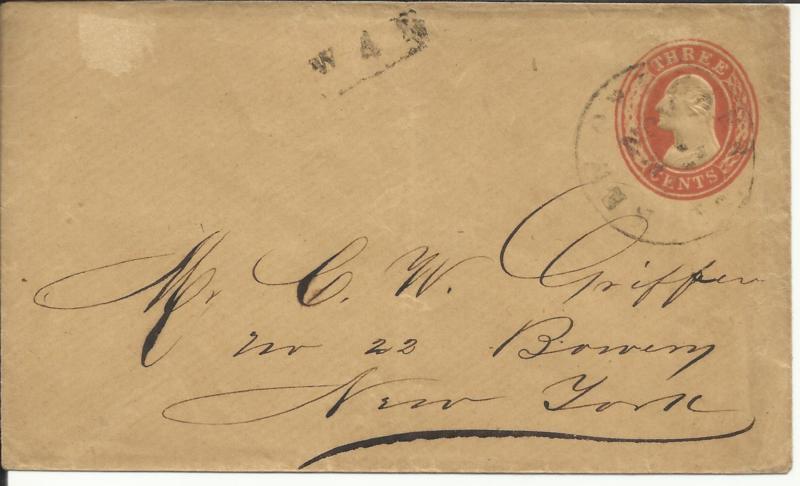 WAY
THREE
CENTS
Mr C. W. Griffen
No 22 Bowery
New York